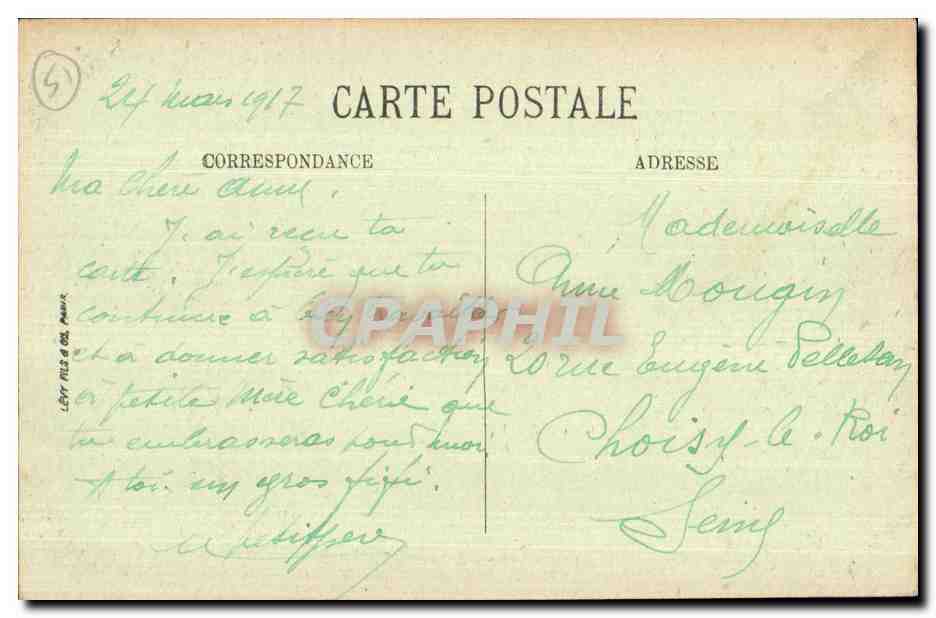 51
24 mars 1917
CARTE POSTALE
CORRESPONDANCE
ADRESSE
Ma Chère Anne.
J'ai reçu ta
carte. J'espère que tu
continue à
et a donner satisfaction
à petite Mère Chérie que
tu embrasseras pour moi
A toi un gros fifi.
Mademoiselle
Anne Mougin
20 rue Eugène Pelletan
Choisy-le-Roi
Seine
LÉVY FILS & Cie, PARIS
CPAPHIL